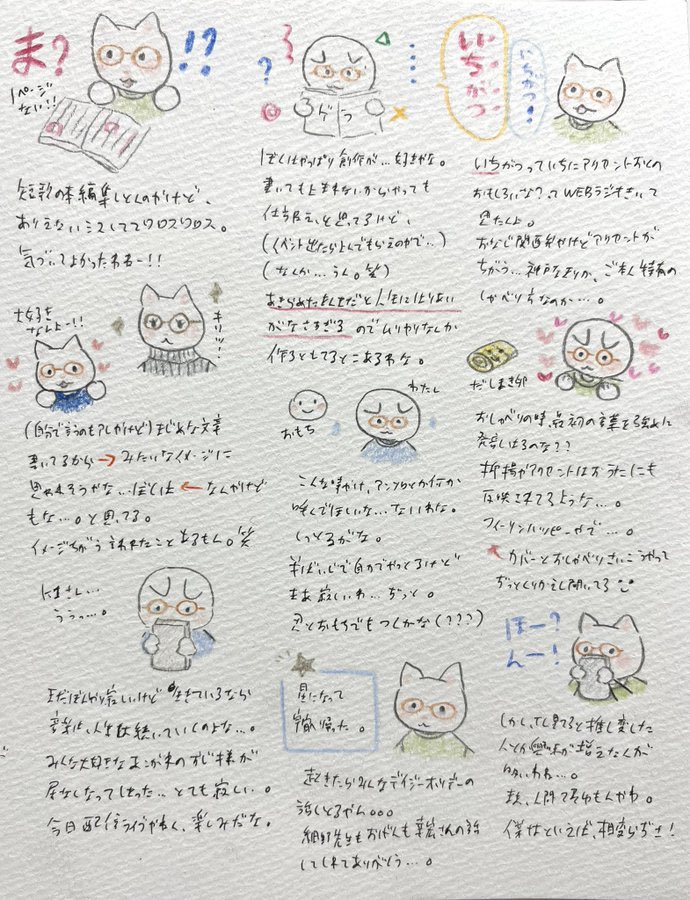 ま?
!?
1ページ
ない!!
短歌の本編集しとんのやけど、
ありえないミスしててワロスワロス。
気づいてよかったわるー!!
大好き
なんよー!!
キリッ!
(自分で言うのもアレやけど)まじめな文章
書いてるから→みたいなイメージに
思われそうやな…ぼくは←なんやけど
もな…。と思ってる。
イメージちがう言われたことあるもん。笑
にまさん…
ううっ…。
まだぼんやり寂しいけど生きているなら
音楽は、人生は続いていくのよな…。
みんな大好きなまこがれのおじ様が
星なしなってしまった…とても寂しい…。
今日配信ライブやねん、楽しみだな。
?
ゲラ
ぼくはやっぱり創作が…好きやな。
書いても上まれないからやっても
仕方ない、と思ってるけど、
(イベント出たら上んでもらえのやで…)
(なんか…うん。笑)
あきらめたまんまだと人生にはりあい
がなさすぎる のでムリやりなんか
作ろともてるとこあるわな。
おもち
わたし
こんな時やけ、アンソロとか何か
呼んでほしいな…ないわな。
しっとるがな。
半ばいじで自力でやってるけど
まあ寂しいわ…ずっと。
思とおもちでもつくかな(???)
星になって
帰った。
起きたらみんなデイジーホリデーの
話しとるやん。。。
細野先生もおげんも幸宏さんの話
してくれてありがとう…。
いちがつ
いちがつ!
いちがつっていちにアクセントおくの
おもしろいな?ってWEBラジオきいて
思たんよ。
おなじ関西弁やけどアクセントが
ちがう…神戸なまりか、ご本人特有の
しゃべり方なのか…。
だしまき卵
おしゃべりの時、最初の言葉を強めに
発音しはるのな??
抑揚やアクセントはおうたにも
反映されてるような…。
フィーリンハッピーやで…。
カバーとおしゃべりさいこうやって
ずっとくりかえし聞いてる
ほー?
んー!
しかしTL見てると推し変した
人とか興味が増えなくが
多いわね…。
まあ、人間て忘るもんやわ。
僕はといえば、相変らずさ!